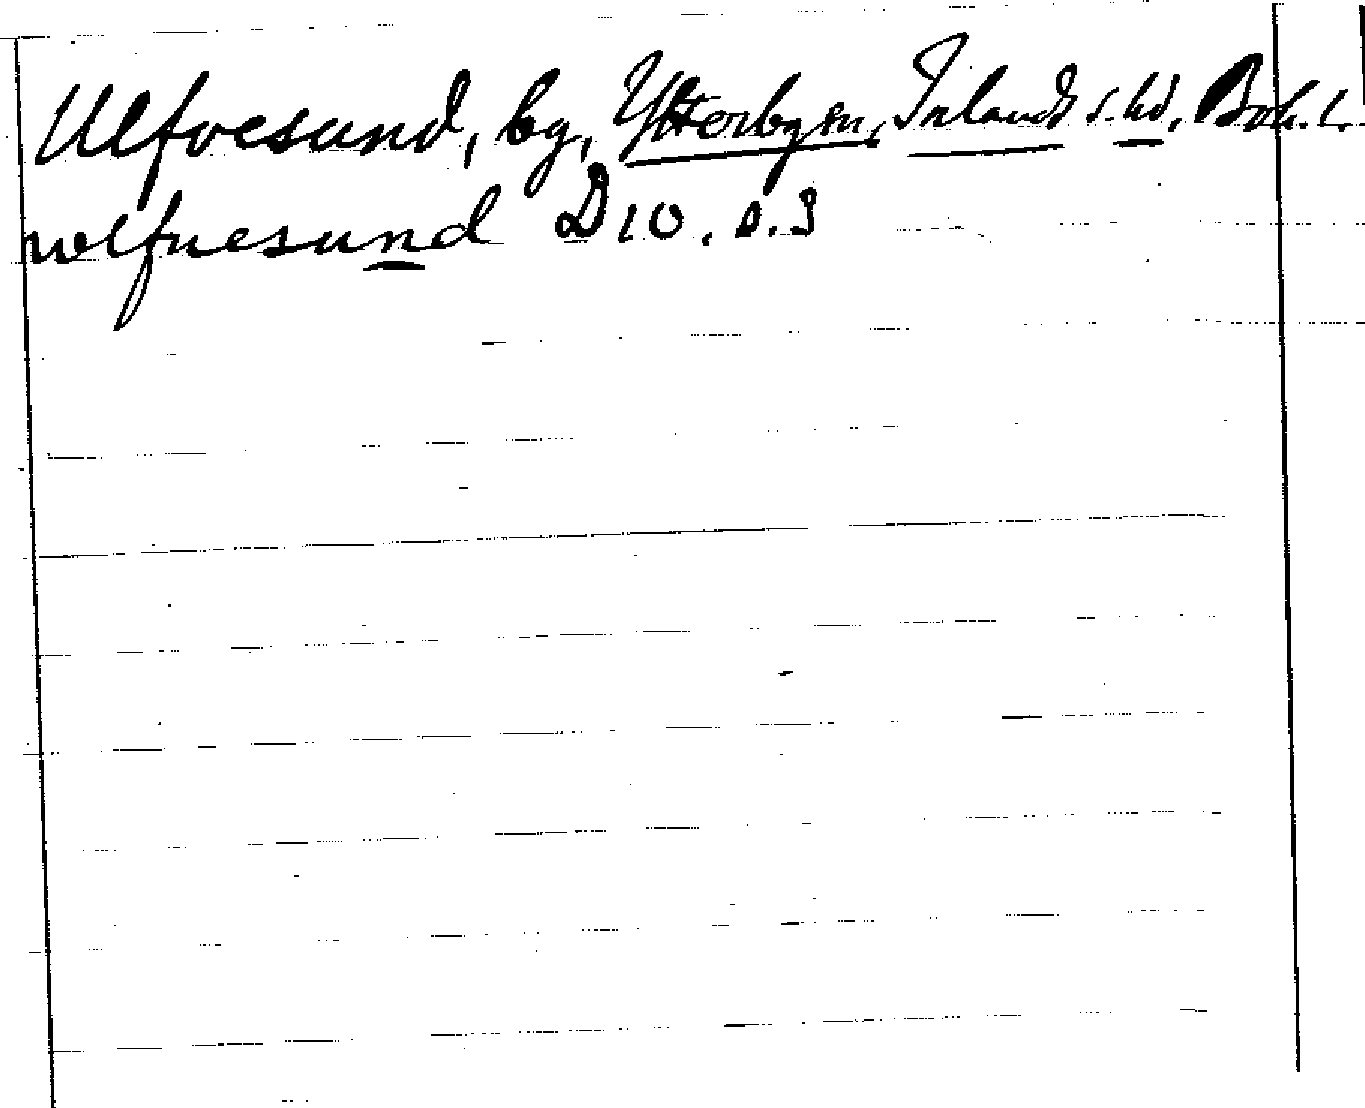 Ulfvesund, by, Ytterby sn, Inlands s. hd, Boh. l.
wlfuesund D 10, s. 3